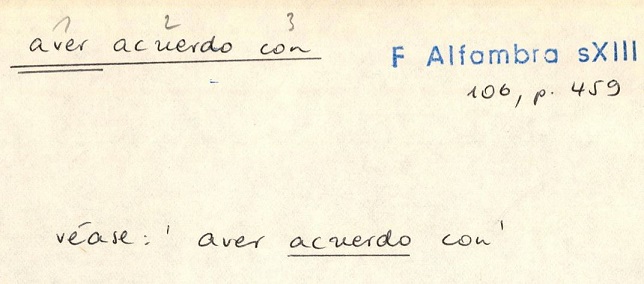 1 2 3
aver acuerdo con
F Alfambra sXIII
106, p. 459
véase: ' aver acuerdo con'